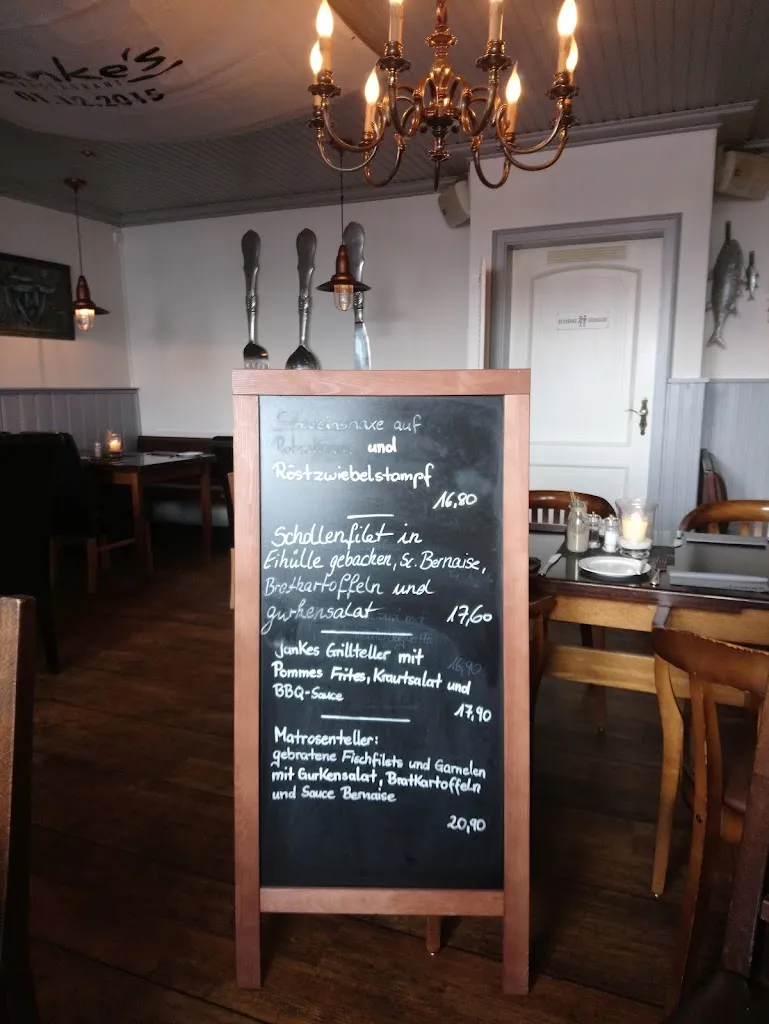 enke's
RESTAURANT
01.12.2015
auf
und
Röstzwiebelstampf
16,80
Schollenfilet in
Eihülle gebacken, Sc. Bernaise,
Bratkartoffeln und
gurkensalat 17,60
Jankes Grillteller mit
16,90
Pommes Frites, Krautsalat und
BBQ-Sauce
17,90
Matrosenteller:
gebratene Fischfilets und Garnelen
mit Gurkensalat, Bratkartoffeln
und Sauce Bernaise
20,90